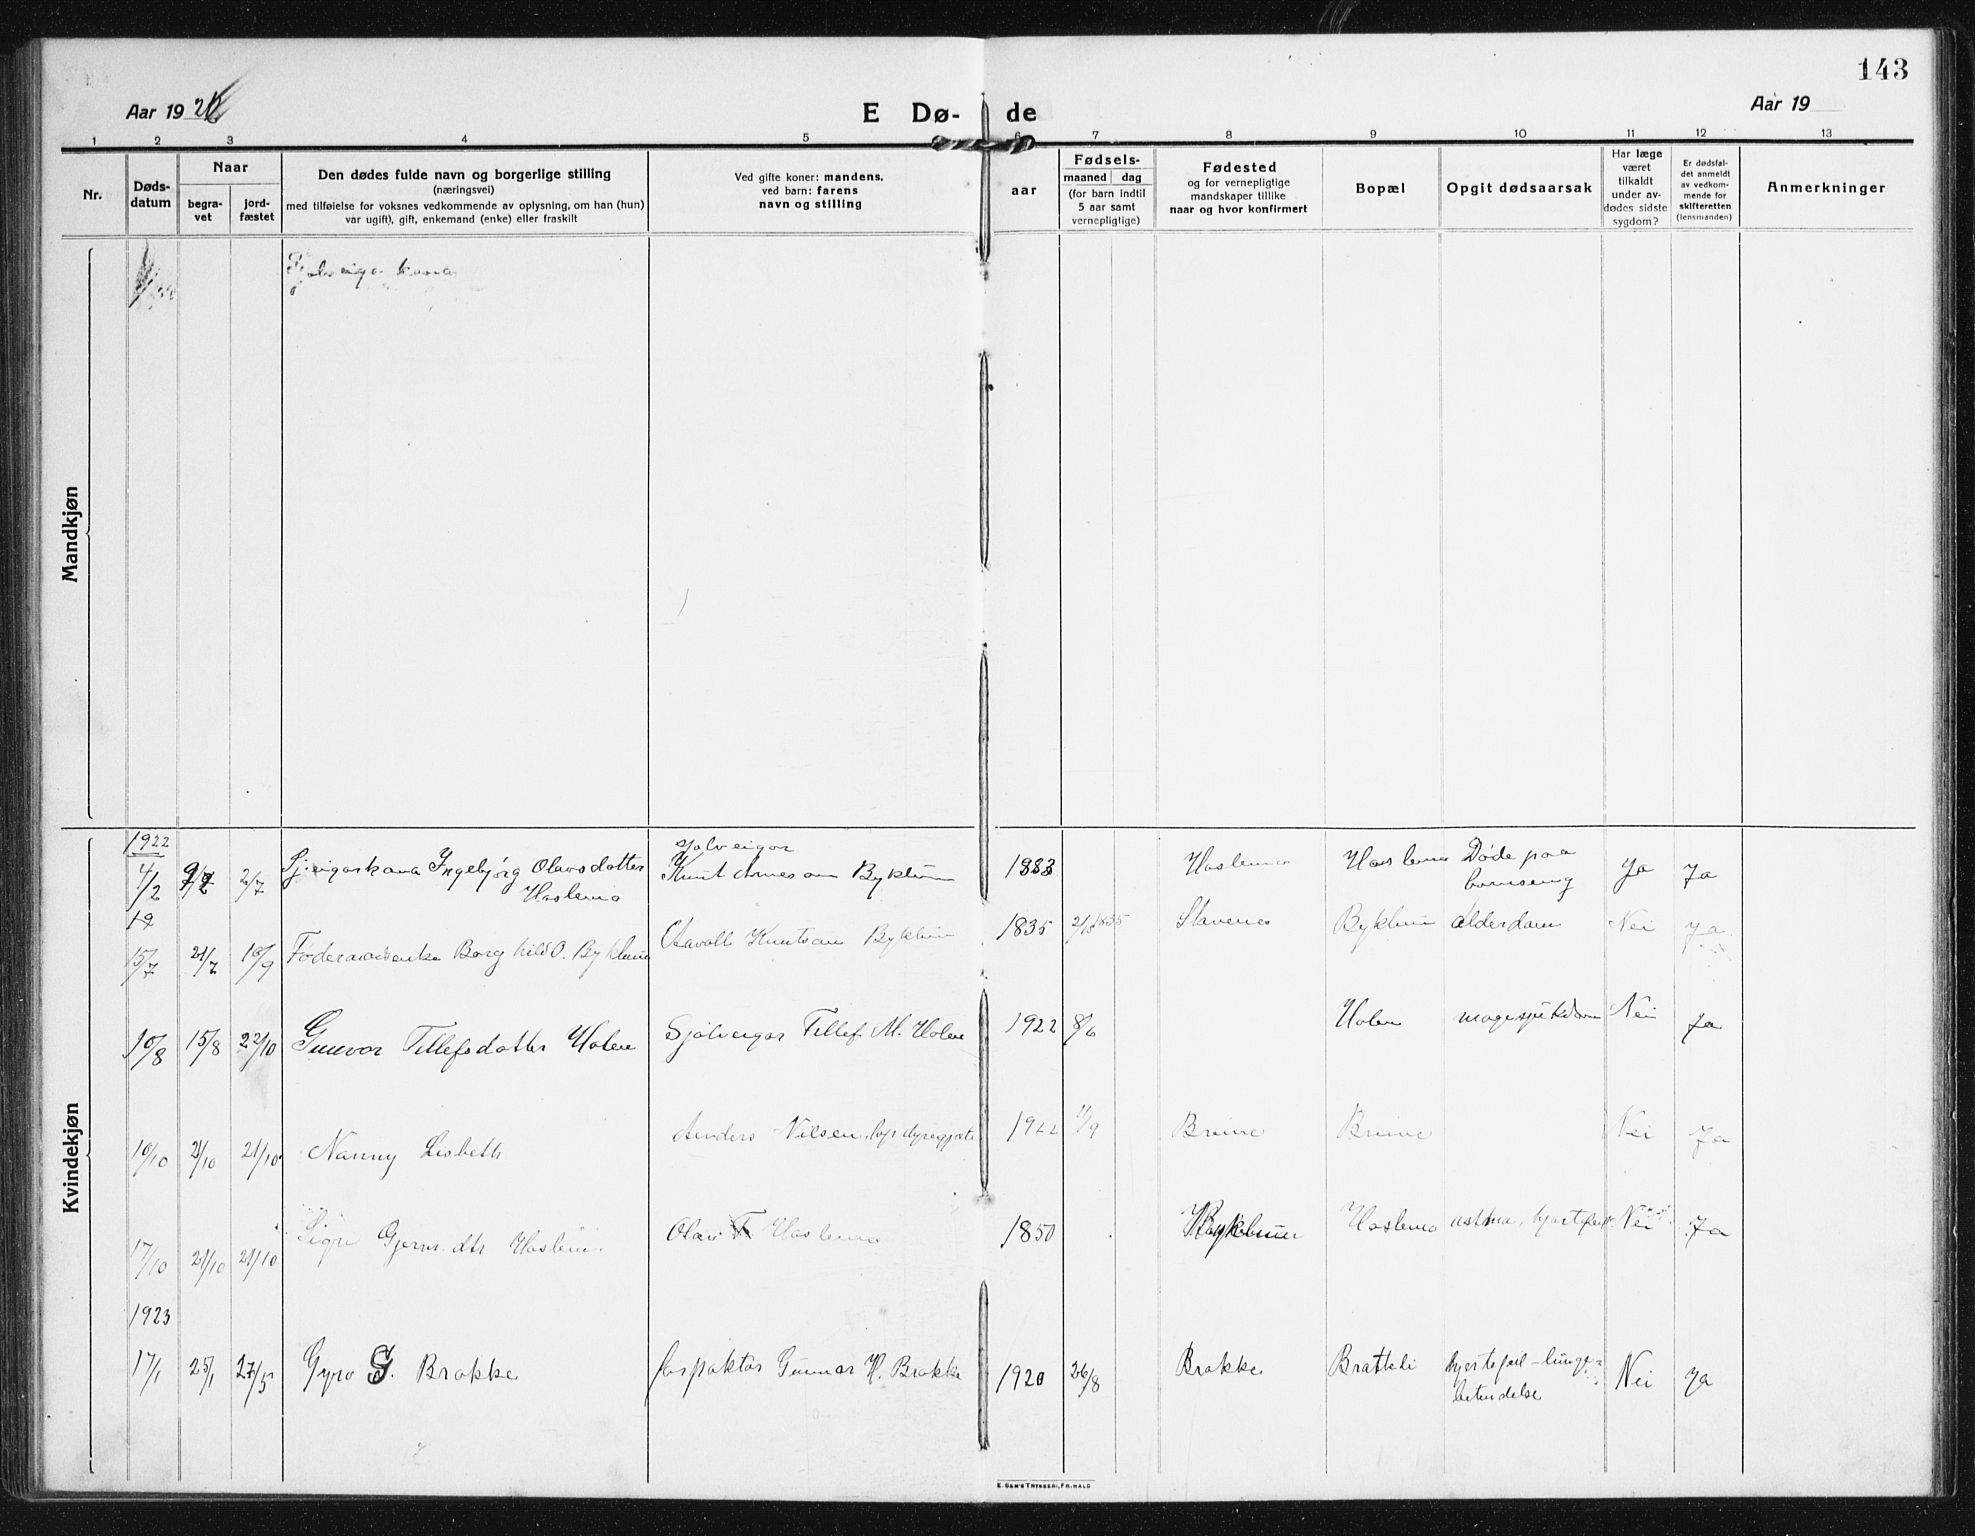 143
Aar 19
E Dø- de
Aar 19
1 2 3 4 5 6 7 8 9 10 11 12 13
Nr.
Døds-
datum
Naar
begra-
vet
jord-
fæstet
Den dødes fulde navn og borgerlige stilling
(næringsvei)
med tilføielse for voksnes vedkommende av oplysning, om han (hun)
var ugift), gift, enkemand (enke) eller fraskilt
Ved gifte koner: mandens,
ved barn: farens
navn og stilling
aar
Fødsels-
maaned dag
(for barn indtil
5 aar samt
vernepligtige)
Fødested
og for vernepligtige
mandskaper tillike
naar og hvor konfirmert
Bopæl
Opgit dødsaarsak
Har læge
været
tilkaldt
under av-
dødes sidste
sygdom?
Er dødsfal-
det anmeldt
av vedkom-
mende for
skifteretten
(lensmanden)
Anmerkninger
Mandkjøn
Kvindekjøn
1922
4/2 2/7 Ingebjørg Olavsdotter
Sjølveigar
Knut Arneson Byklum 1883 Haslemo Haslemo Døde paa
barnseng Ja Ja
Haslemo
15/7 21/7 18/9 Borghild O. Byklum Aavoll Knutson Byklum 1835 1835 Stavenes Byklum alderdom Nei Ja
10/8 15/8 22/10 Gunvor Tellefsdotter Holen Sjølveigar Tellef M. Holen 1922 8/6 Holen magesjukdom Nei Ja
10/10 21/10 21/10 Nanny Lisbeth Anders Nilsen 1922 Nei Ja
17/10 21/10 21/10 Olav T. Haslemo 1850 Byklum Haslemo astma, hjertefeil Nei Ja
1923
17/1 25/1 27/5 Gyro G. Brokke Gunnar H. Brokke 1920 26/8 Brokke Bratteli hjertefeil - lunge-
betendelse Nei Ja
E. SEM'S TRYKKERI, FR.HALD